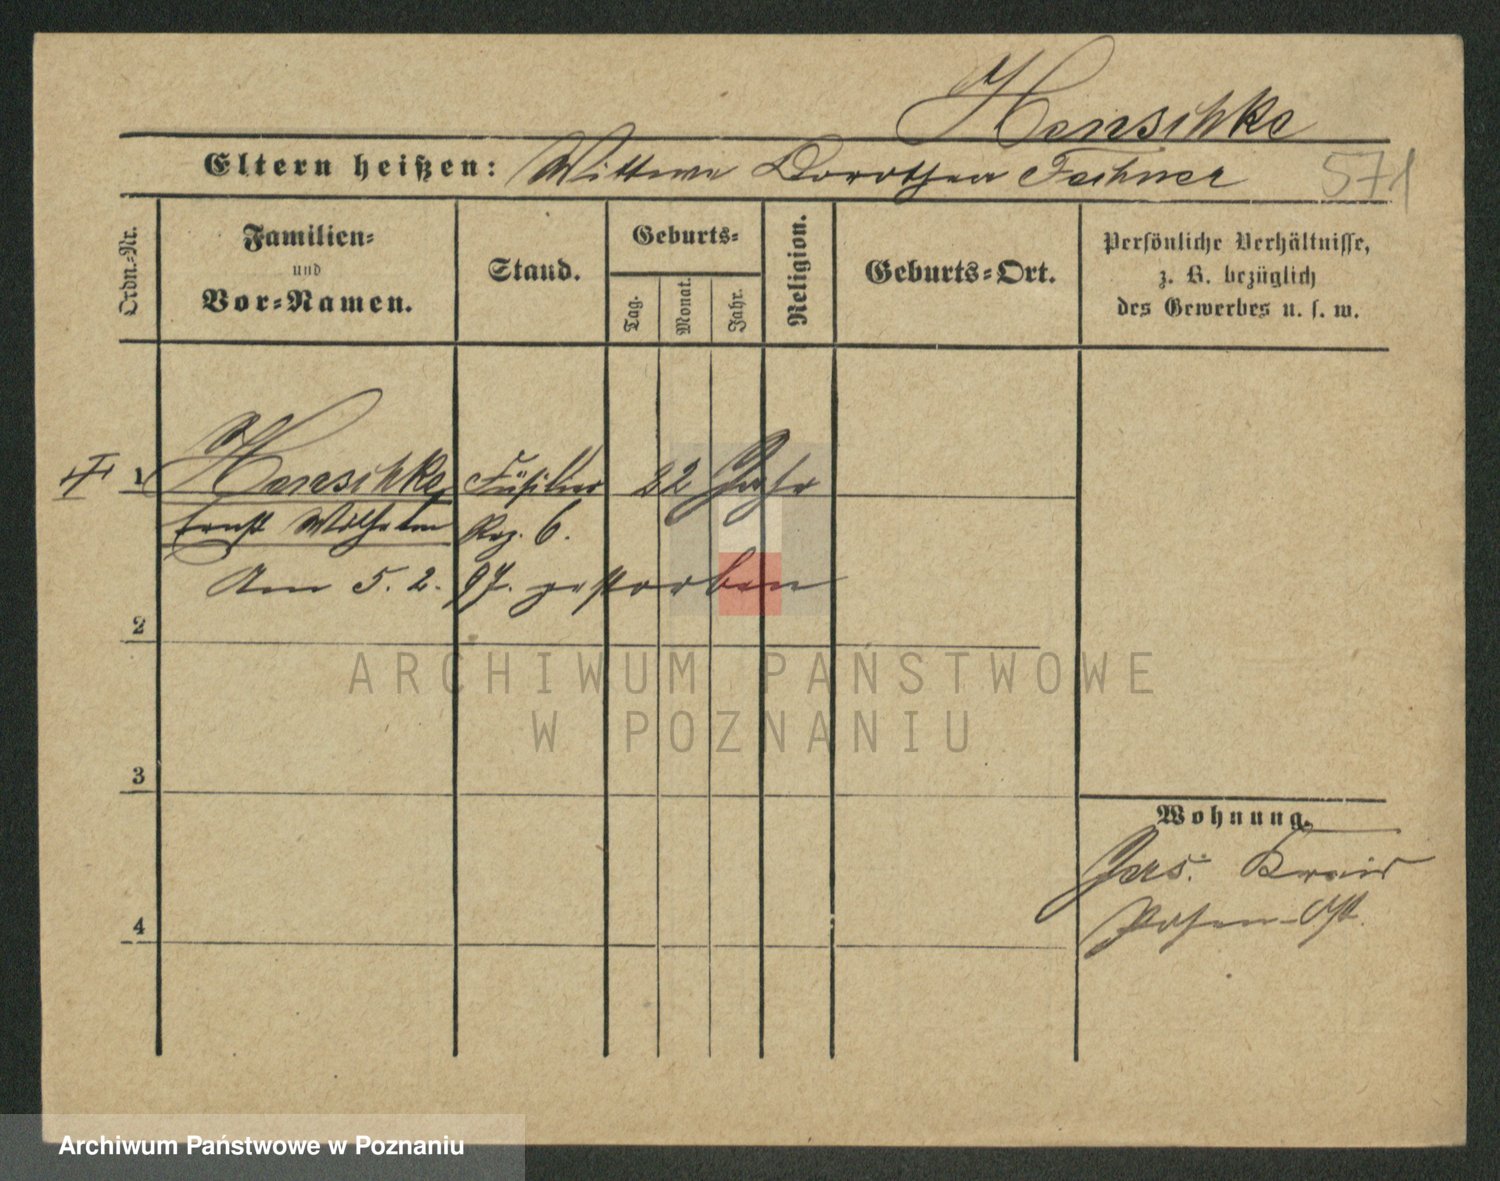 Henschke
Eltern heißen: Wittwe Dorothea Fechner 571
Ordn.-Nr.
Familien-
und
Vor-Namen.
Stand.
Geburts-
Tag.
Monat.
Jahr.
Religion.
Geburts-Ort.
Persönliche Verhältnisse,
z. B. bezüglich
des Gewerbes u. s. w.
1 Henschke Füsilier 22 Jahr
Ernst Wilhelm Reg. 6.
Am 5. 2. 97. gestorben
2
ARCHIWUM PAŃSTWOWE
W POZNANIU
3
Wohnung.
Posen-Ost.
4
Archiwum Państwowe w Poznaniu